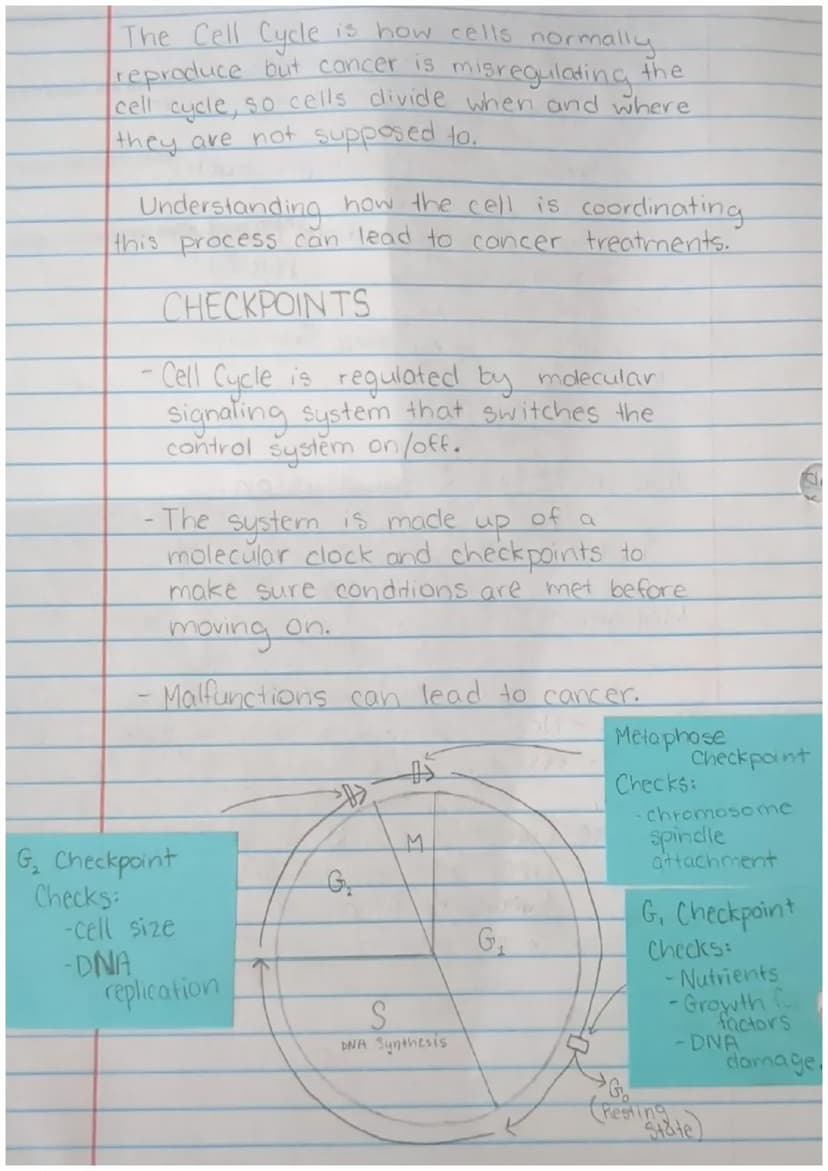 The Cell Cycle is how cells normally
reproduce but cancer is misregulating the
cell cycle, so cells divide when and where
they are not supposed to.
Understanding how the cell is coordinating
this process can lead to cancer treatments.
CHECKPOINTS
- Cell Cycle is regulated by molecular
signaling system that switches the
control system on/off.
- The system is made up of a
molecular clock and checkpoints to
make sure conditions are met before
moving on.
- Malfunctions can lead to cancer.
Metaphase
Checkpoint
Checks:
- chromosome
spindle
attachment
G₂ Checkpoint
Checks:
- cell size
- DNA
replication
M
G₂
G₁
S
DNA Synthesis
G₁ Checkpoint
Checks:
- Nutrients
- Growth
factors
- DNA
damage.
G₀
(Resting
State)